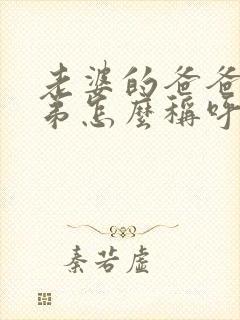 老婆的爸爸
弟怎麼稱呼
秦若虛